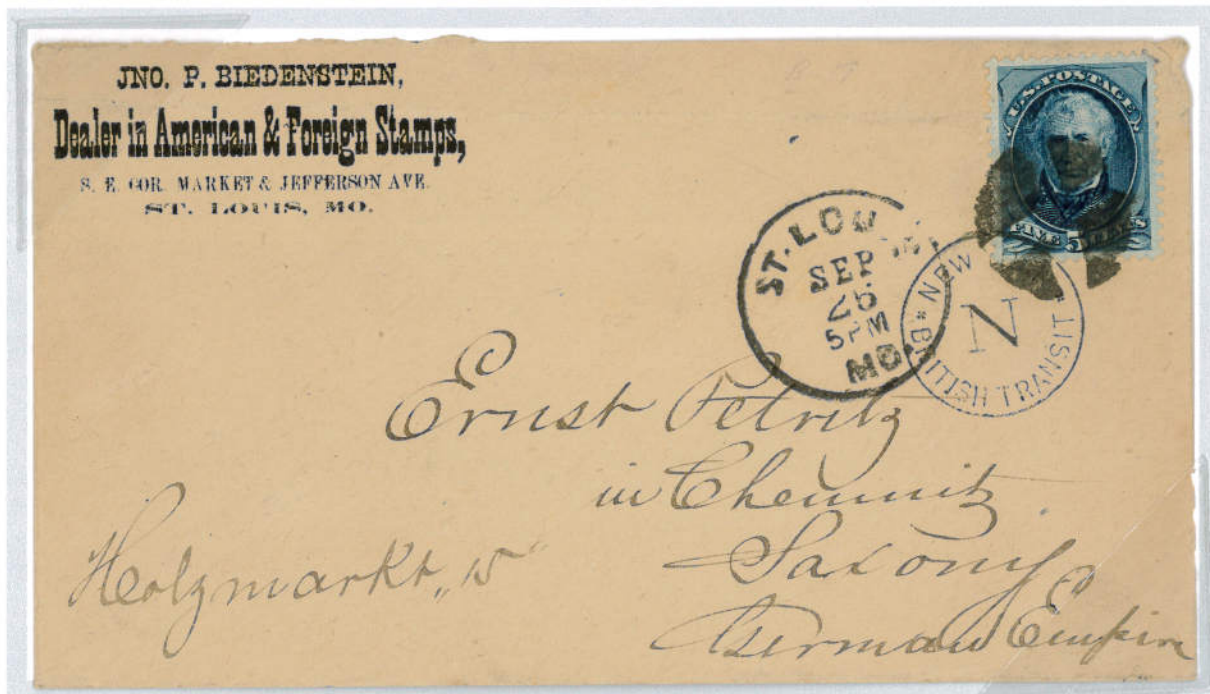 JNO. P. BIEDENSTEIN,
Dealer in American & Foreign Stamps,
S. E. COR. MARKET & JEFFERSON AVE.
ST. LOUIS, MO.
U.S. POSTAGE
FIVE 5 CENTS
ST. LOUIS
SEP
26
5 PM
MO.
NEW
N
BRITISH TRANSIT
Ernst Petritz
in Chemnitz
Saxony
German Empire
Holzmarkt „15“